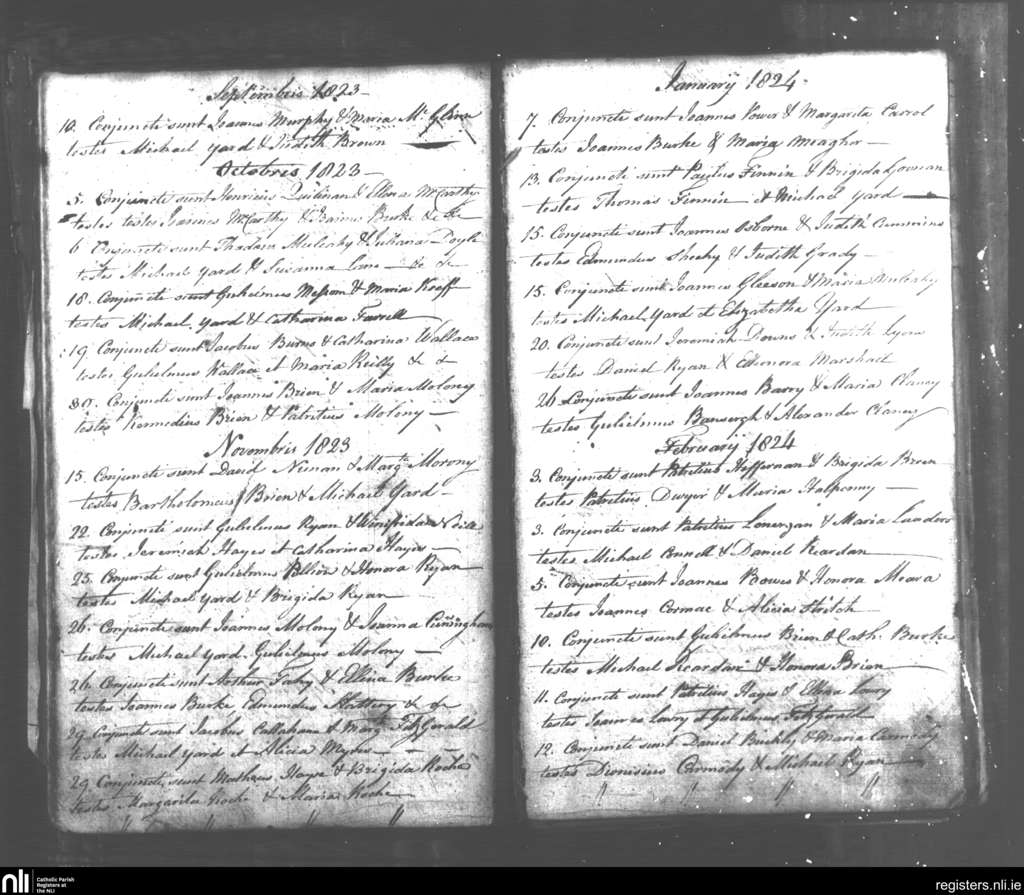 Septembris 1823
10. Conjuncti sunt Joannes Murphy & Maria Mc Glinn
testes Michael Yard & Judith Brown
Octobris 1823
5. Conjuncti sunt Henricus Quilinan & Ellena McCarthy
testes testes Joannes McCarthy & Burke &
6 Conjuncti sunt Mulcahy & Doyle
testes Michael Yard & Susanna Lane
18. Conjuncti sunt Gulielmus & Maria Keeff
testes Michael Yard & Catharina Farrell
19 Conjuncti sunt Jacobus Burns & Catharina Wallace
testes Gulielmus Wallace et Maria Reilly & &
30. Conjuncti sunt Joannes Brien & Maria Molony
testes Kennedius Brien & Patritius Molony
Novembris 1823
15. Conjuncti sunt David Noonan & Margt. Morony
testes Bartholomeus Brien & Michael Yard
22. Conjuncti sunt Gulielmus Ryan & Winifrida
testes Jeremiah Hayes et Catharina Hayes
25. Conjuncti sunt Gulielmus & Honora Ryan
testes Michael Yard & Brigida Ryan
26. Conjuncti sunt Joannes Molony & Joanna Cuningham
testes Michael Yard. Gulielmus Molony
26 Conjuncti sunt Arthur Fahy & Ellena Burke
testes Joannes Burke Edmundus Slattery & &
29 Conjuncti sunt Jacobus Callahane & Marg. FitzGerald
testes Michael Yard et Alicia Myres
29 Conjuncti sunt Matheus Hayes & Brigida Roche
testes Margarita Roche & Maria Roche
" " " "
Januarij 1824
7. Conjuncti sunt Joannes Power & Margarita Carrol
testes Joannes Burke & Maria Meagher
13. Conjuncti sunt Paulus Finnin & Brigida
testes Thomas Finnin et Michael Yard
15. Conjuncti sunt Joannes Osborne & Judith Cummins
testes Edmundus Sheehy & Judith Grady
15. Conjuncti sunt Joannes Gleeson & Maria Mulcahy
testes Michael Yard et Elizabetha Yard
20. Conjuncti sunt Jeremiah Downs & Judith Lyons
testes Daniel Ryan & Elleonora Marshal
26 Conjuncti sunt Joannes Barry & Maria Clancy
testes Gulielmus & Alexander Clancy
Februarij 1824
3. Conjuncti sunt Patritius Heffernan & Brigida Brien
testes Patritius Dwyer & Maria Halpenny
3. Conjuncti sunt Patritius Lonergan & Maria
testes Michael Connell & Daniel Reardan
5. Conjuncti sunt Joannes Bowes & Honora Meara
testes Joannes Cormac & Alicia Stritch
10. Conjuncti sunt Gulielmus Brien & Cath. Burke
testes Michael Reardan & Honora Brien
11. Conjuncti sunt Patritius Hayes & Ellena Lowry
testes Joannes Lowry et Gulielmus FitzGerald
12. Conjuncti sunt Daniel Buckly & Maria Carmody
testes Dionisius Carmody & Michael Ryan
" " " "
nli Catholic Parish
Registers at
the NLI
registers.nli.ie